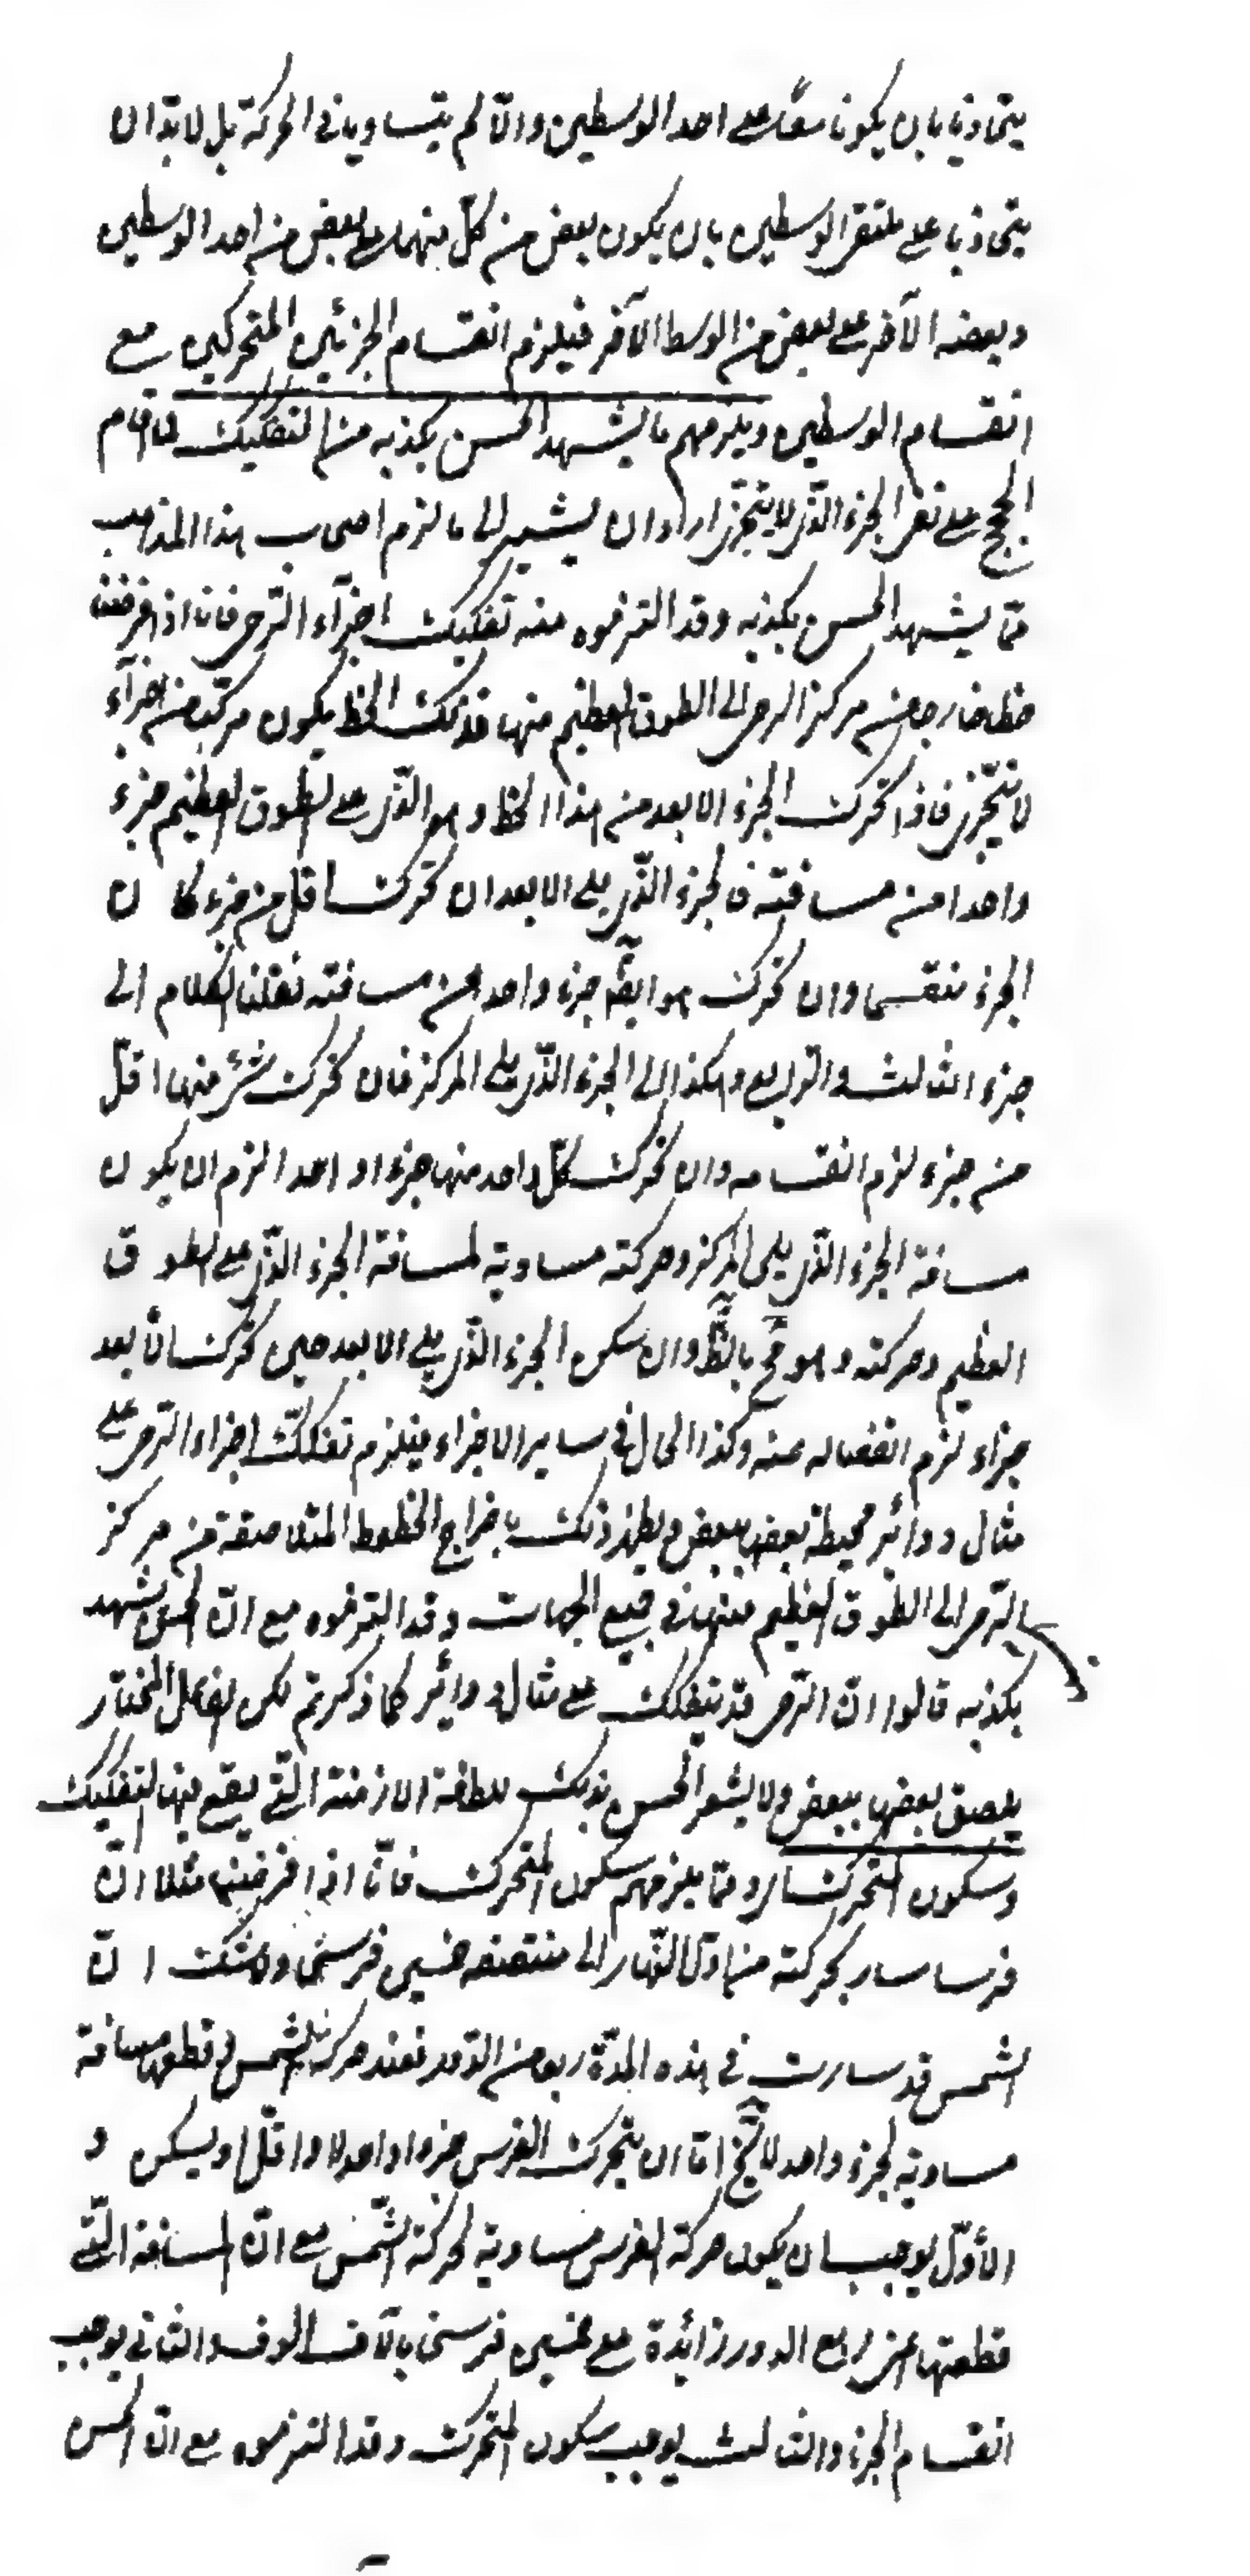 يتحاذيا بان يكونا معًا على احد الوسطين والّا لم يتساويا فى الحركة بل لا بدّ ان
يتحاذيا على ملتقى الوسطين بان يكون بعض من كلّ منهما على بعض من احد الوسطين
وبعضه الآخر على بعض من الوسط الآخر فيلزم انقسام الجزئين المتحركين مع
انقسام الوسطين ويلزمهم ما يشهد الحسن بكذبه من التفكيك لما اقام
الحجج على نفى الجزء الّذى لا يتجزّى اراد ان يشير الى ما لزم اصحاب هذا المذهب
ممّا يشهد الحس بكذبه وقد التزموه منه تفكيك اجزآء الرّحى فانا اذا فرضنا
خطا خارجا من مركز الرحى الى الطوق العظيم منها فذلك الخط يكون مركّبا من اجزآء
لا تتجّزى فاذا تحركت الجزء الابعد من هذا الخط وهو الّذى على الطوق العظيم جزء
واحدا من مسافته فالجزء الّذى يلى الابعد ان تحركت اقل من جزء كا ن
الجزء منقسما وان تحركت هو ايضًا جزء واحد من مسافته نقلنا الكلام الى
جزء الثالث والرّابع وهكذا الى الجزء الّذى يلى المركز فان تحركت شئ منها اقلّ
من جزء لزم انقسامه وان تحركت كلّ واحد منها جزءا واحدا لزم ان يكو ن
مسافة الجزء الّذى يلى المركز وحركته مساوية لمسافة الجزء الّذى على الطو ق
العظيم وحركته وهو مح بالظّ وان سكن الجزء الّذى يلى الابعد حين تحركت الأبعد
جزاء لزم انفصاله عنه وكذا الحال فى ساير الاجزاء فيلزم تفكّك اجزاء الرّحى على
مثال دوائر محيطة بعضها ببعض ويظهر ذلك باخراج الخطوط المتلاصقة من مركز
الرّحى الى الطّوق العظيم منها فى جميع الجهات وقد التزموه مع انّ الحس يشهد
بكذبه قالوا انّ الرّحى قد يتفكك على مثال دوائر كما ذكرتم لكن الفاعل المختار
يلصق بعضها ببعض ولا يشعر الحس بذلك للطافة الازمنة الّتى يقع فيها التفكيك
وسكون المتحرك اى وممّا يلزمهم سكون المتحرك فانّا اذا فرضنا مثلا انّ
فرسا سار بحركته من اوّل النّهار الى منتصفه خمسين فرسخا ولا شك ا نّ
الشمس قد سارت فى هذه المدّة ربعا من الدّور فعند حركة الشمس فى قطعها مسافة
مساوية لجزء واحد لا يخ امّا ان يتحرك الفرس جزءا واحدا او اقلّ او يسكن و
الأوّل يوجب ان يكون حركة الفرس مساوية لحركة الشّمس مع انّ المسافة الّتى
قطعتها اعنى ربع الدور زائدة على خمسين فرسخا بآلاف الوف والثانى يوجب
انقسام الجزء والثالث يوجب سكون المتحرك وقد التزموه مع انّ الحس